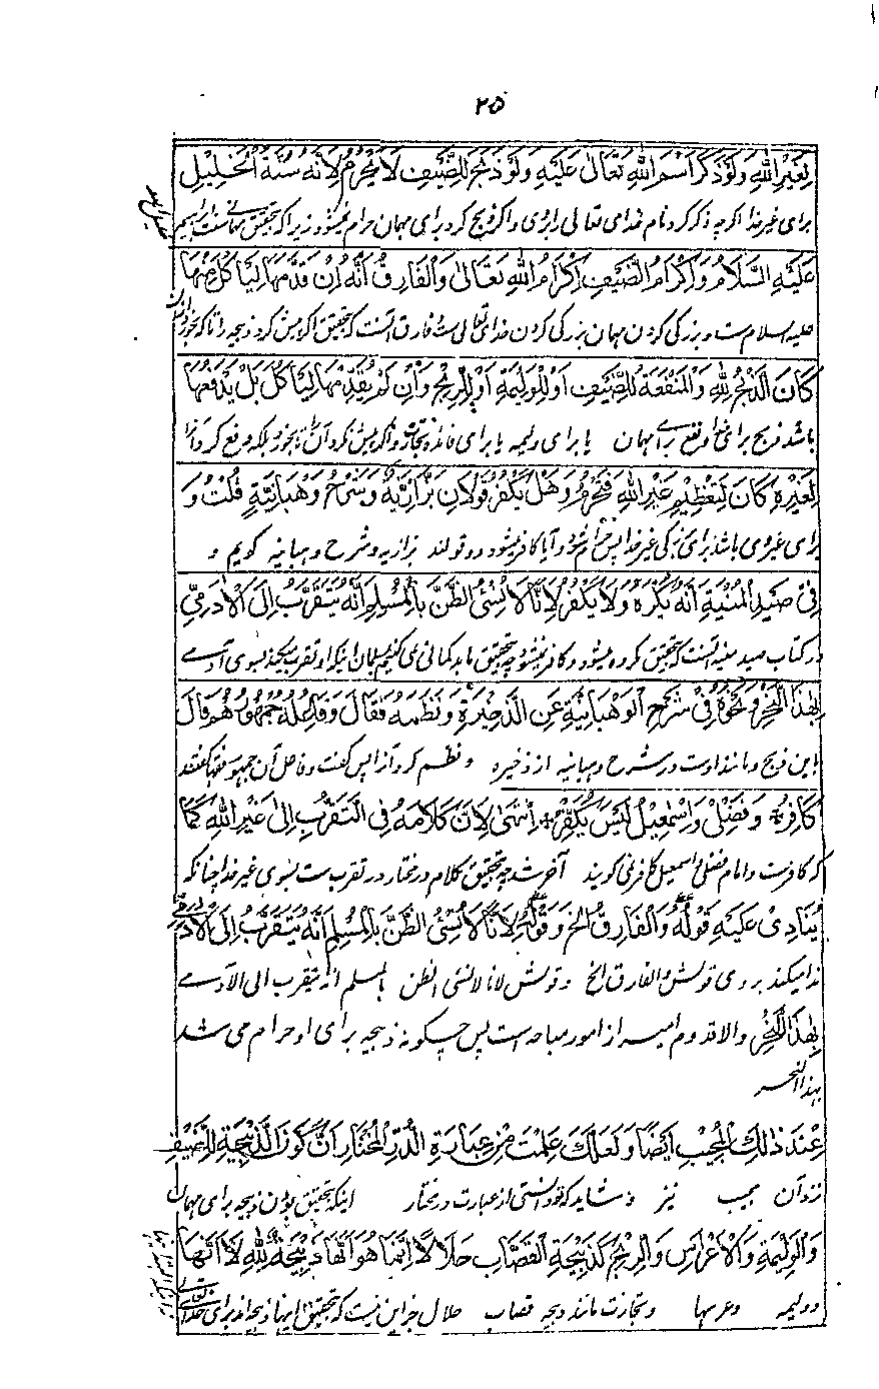 ۲۵
لِغَيْرِ اللهِ وَلَوْ ذُكِرَ اسْمُ اللهِ تَعَالٰى عَلَيْهِ وَلَوْ ذَبَحَ لِلضَّيْفِ لَا يَحْرُمُ لِاَنَّهُ سُنَّةُ الْخَلِيْلِ
برای غیر خدا اگرچه ذکر کرد نام خدای تعالی را بروی و اگر ذبح کرد برای مهمان حرام نمیشود زیراکه تحقیق مهمانی سنت ابراهیم
عَلَيْهِ السَّلَامُ وَاِكْرَامُ الضَّيْفِ اِكْرَامُ اللهِ تَعَالٰى وَالْفَارِقُ اَنَّهُ اِنْ قَدَّمَهَا لِيَاْكُلَ مِنْهَا
علیه السلام ست و بزرگی کردن مهمان بزرگی کردن خدای تعالی ست و فارق آنست که تحقیق اگر پیش کرد ذبیحه را تا که بخورد
كَانَ الذَّبْحُ لِلّٰهِ وَالْمَنْفَعَةُ لِلضَّيْفِ اَوْ لِلْوَلِيْمَةِ اَوْ لِلرِّبْحِ وَاِنْ لَمْ يُقَدِّمْهَا لِيَاْكُلَ بَلْ يَدْفَعُهَا
باشد ذبح برای خدا و نفع برای مهمان یا برای ولیمه یا برای فائده تجارت و اگر پیش نکرد آنرا تا بخورد بلکه دفع کرد آنرا
لِغَيْرِهِ كَانَ لِتَعْظِيْمِ غَيْرِ اللهِ فَتَحْرُمُ وَهَلْ يُكَفَّرُ قَوْلَانِ بَزَّازِيَّه وَشَرْحُ وَهْبَانِيَّةٍ قُلْتُ وَ
برای غیر وی باشد برای بزرگی غیر خدا پس حرام شود و آیا کافر میشود دو قولند بزازیه و شرح وهبانیه گویم و
فِىْ صَيْدِ الْمُنْيَةِ اَنَّهُ يُكْرَهُ وَلَا يُكَفَّرُ لِاَنَّا لَا نُسِىْءُ الظَّنَّ بِالْمُسْلِمِ اَنَّهُ يَتَقَرَّبُ اِلَى الْاٰدَمِىِّ
در کتاب صید منیه آنست که تحقیق مکروه میشود و کافر نمیشود چه تحقیق ما بدگمانی نمی کنیم بمسلمان اینکه او تقرب میکند بسوی آدمی
بِهٰذَا النَّحْرِ وَنَحْوُهُ فِىْ شَرْحِ الْوَهْبَانِيَّةِ عَنِ الذَّخِيْرَةِ وَنَظَمَهُ فَقَالَ وَفَاعِلُهُ جُمْهُوْرُهُمْ قَالَ
باین ذبح و مانند اوست در شرح وهبانیه از ذخیره و نظم کرد آنرا پس گفت و فاعل آن جمهور فقها گفتند
كَافِرٌ وَفَضْلِىْ وَاِسْمٰعِيْلُ لَيْسَ يُكَفِّرُ اِنْتَهٰى لِاَنَّ كَلَامَهُ فِى التَّقَرُّبِ اِلٰى غَيْرِ اللهِ كَمَا
که کافرست و امام فضلی و اسمعیل کافر نمی گویند آخر شد چه تحقیق کلام در مختار در تقرب ست بسوی غیر خدا چنانکه
يُنَادِىْ عَلَيْهِ قَوْلُهُ وَالْفَارِقُ الخ وَقَوْلُهُ لِاَنَّا لَا نُسِىْءُ الظَّنَّ بِالْمُسْلِمِ اَنَّهُ يَتَقَرَّبُ اِلَى الْاٰدَمِىِّ
ندا میکند بر وی قولش و الفارق الخ و قولش لانا لا نسئی الظن بالمسلم انه یتقرب الی الآدمے
بِهٰذَا النَّحْرِ والا قدوم امیر از امور مباحه است پس چگونه ذبیحه برای او حرام می شد
بهذا النحر
عِنْدَ ذٰلِكَ الْمُجِيْبِ اَيْضًا وَلَعَلَّكَ عَلِمْتَ مِنْ عِبَارَةِ الدُّرِّ الْمُخْتَارِ اَنَّ كَوْنَ الذَّبِيْحَةِ لِلضَّيْفِ
نزد آن مجیب نیز و شاید که تو دانستی از عبارت در مختار اینکه تحقیق بودن ذبیحه برای مهمان
وَالْوَلِيْمَةِ وَالْاَعْرَاسِ وَالرِّبْحِ كَذَبِيْحَةِ الْقَصَّابِ حَلَالًا اِنَّمَا هُوَ اَنَّهَا ذَبِيْحَةٌ لِلّٰهِ لَا اَنَّهَا
و ولیمه و عرسها و تجارت مانند ذبیحه قصاب حلال جز این نیست که تحقیق اینها ذبیحه اند برای خدا تعالی